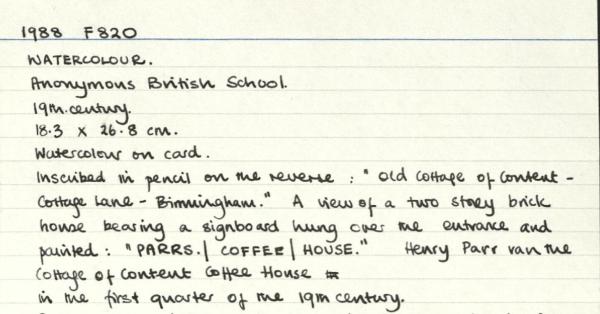 1988 F820
WATERCOLOUR.
Anonymous British School.
19th.century.
18.3 x 26.8 cm.
Watercolour on card.
Inscribed in pencil on the reverse : " Old Cottage of Content -
Cottage Lane - Birmingham." A view of a two story brick
house bearing a signboard hung over the entrance and
painted : "PARRS.| COFFEE | HOUSE." Henry Parr ran the
Cottage of Content Coffee House
in the first quarter of the 19th century.